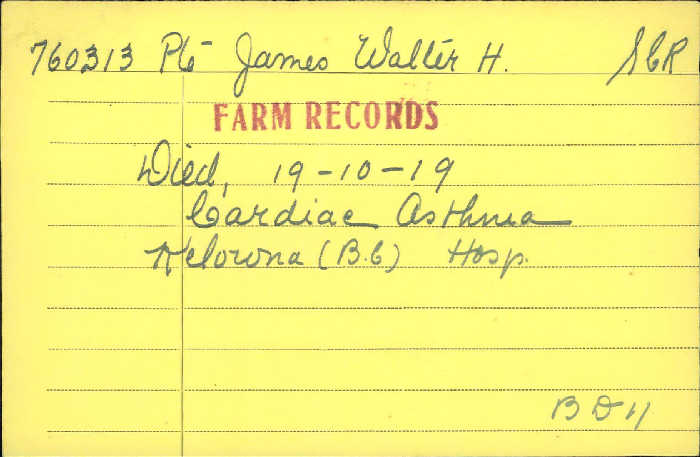 760313 Pte James Walter H. SCR
FARM RECORDS
Died, 19-10-19
Cardiac Asthma
Kelowna (B.C) Hosp.
B D 11